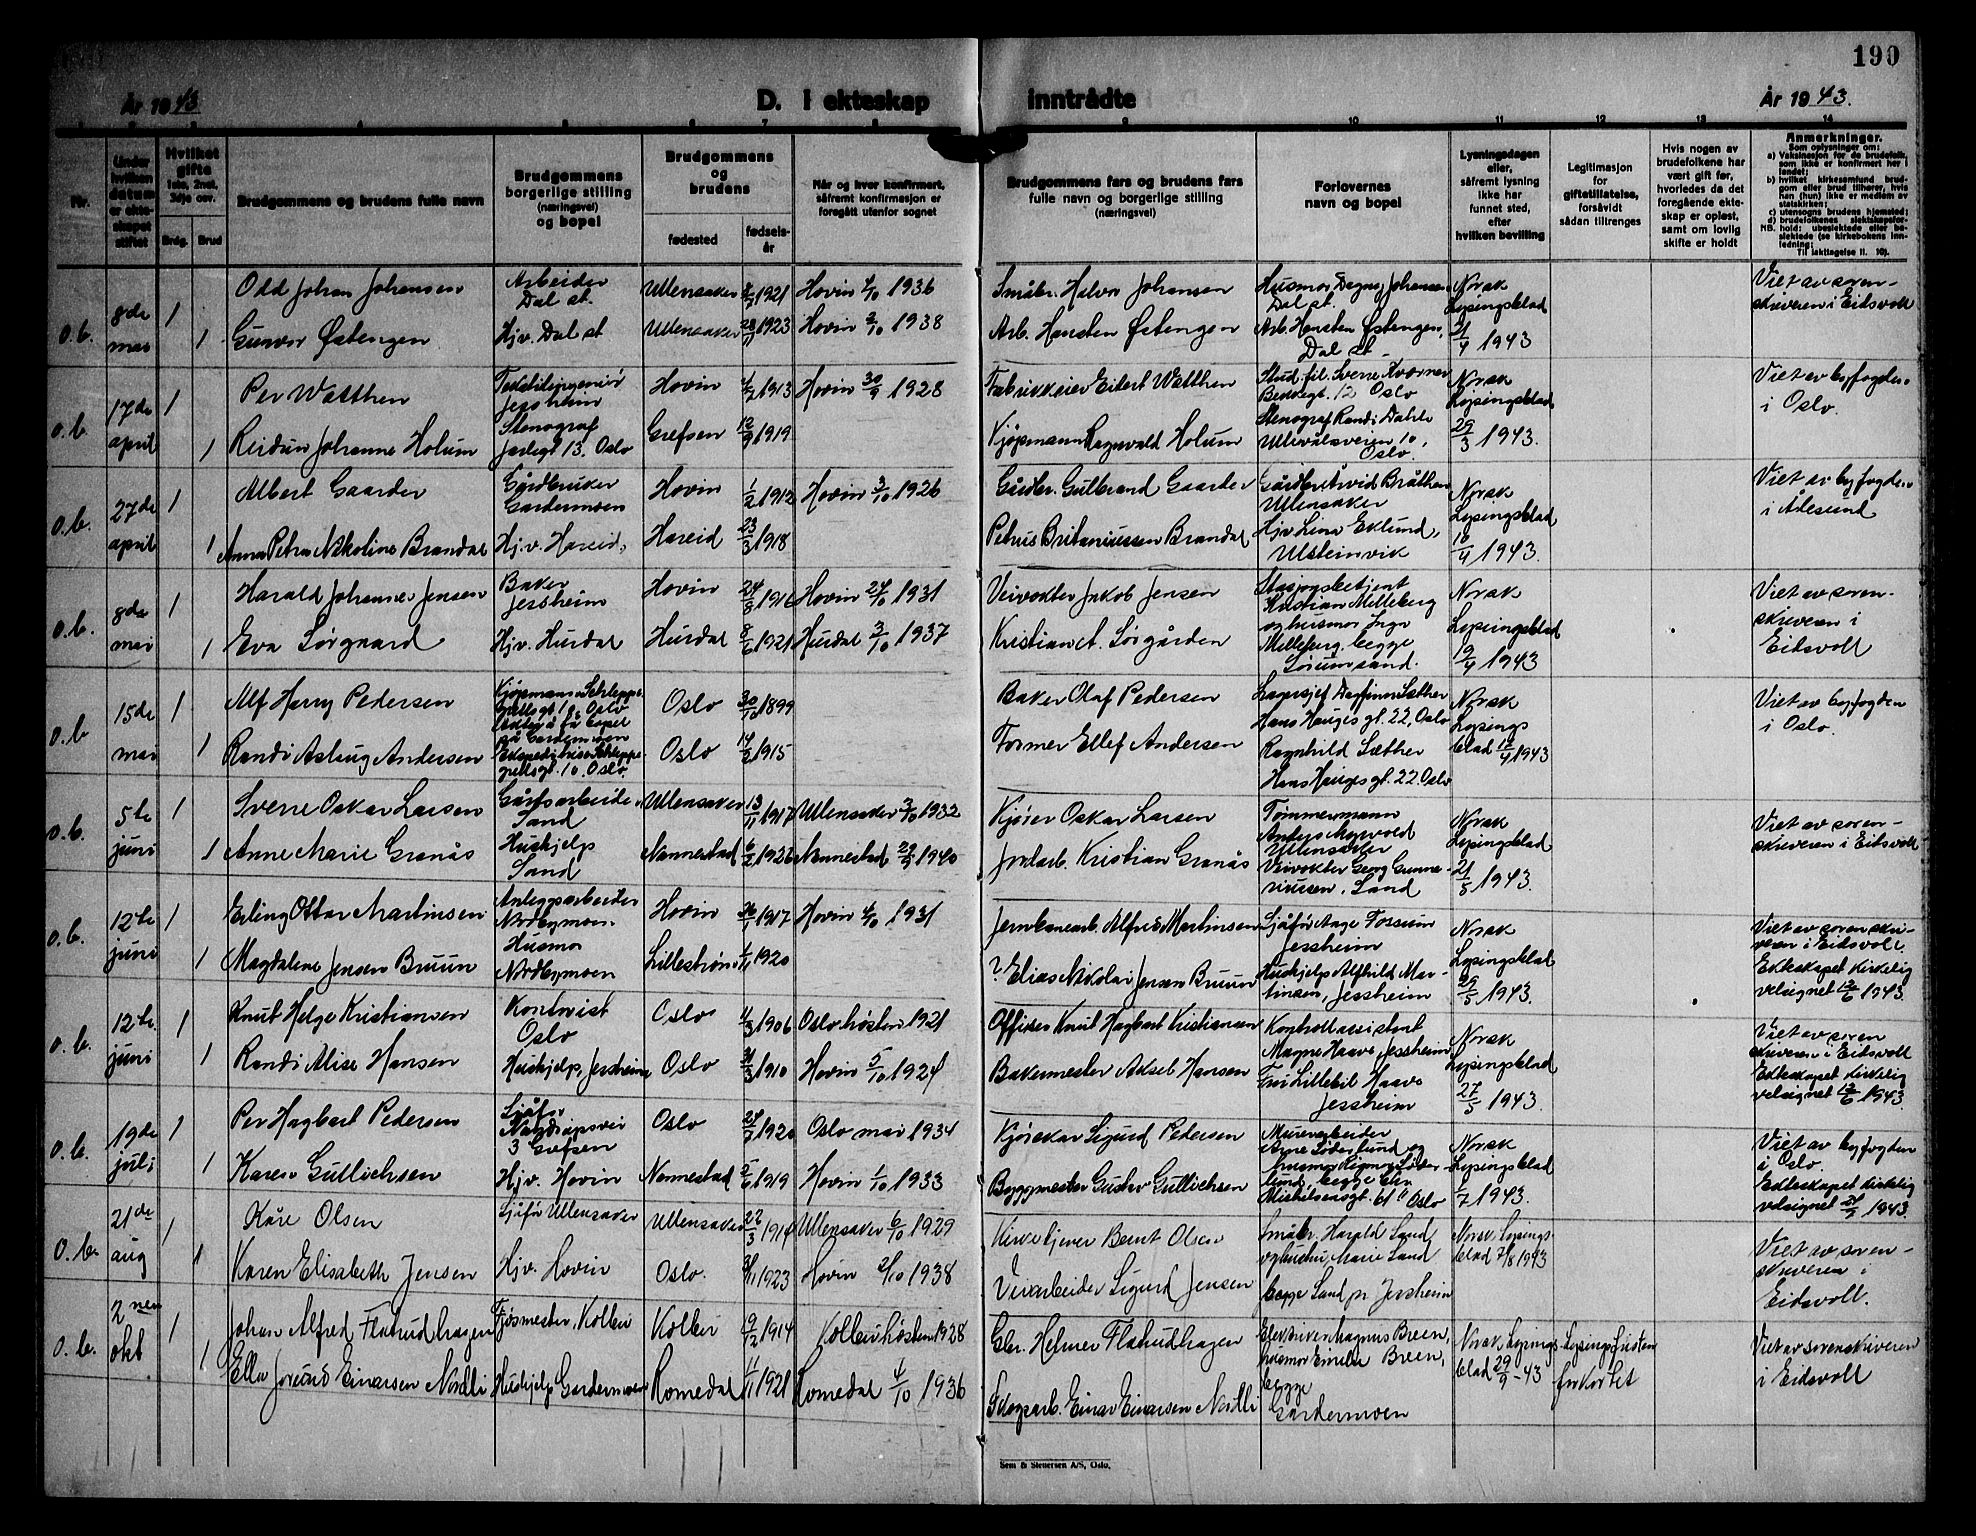 190
År 1943
D. I ekteskap inntrådte
År 1943.
Nr.
Under hvilken datum er ekteskapet stiftet
Hvilket gifte
1ste, 2net, 3dje osv.
Brdg. Brud
Brudgommens og brudens fulle navn
Brudgommens borgerlige stilling (næringsvei) og bopel
Brudgommens og brudens
fødested
fødselsår
Når og hvor konfirmert, såfremt konfirmasjon er foregått utenfor sognet
Brudgommens fars og brudens fars fulle navn og borgerlige stilling (næringsvei)
Forlovernes navn og bopel
Lysningsdagen eller, såfremt lysning ikke har funnet sted, efter hvilken bevilling
Legitimasjon for giftetillatelse, forsåvidt sådan tiltrenges
Hvis nogen av brudefolkene har vært gift før, hvorledes da det foregående ekteskap er opløst, samt om lovlig skifte er holdt
Anmerkninger.
Som oplysninger om:
a) Vaksinasjon for de brudefolk, som ikke er konfirmert her i landet;
b) hvilket kirkesamfund brudgom eller brud tilhører, hvis han (hun) ikke er medlem av statskirken;
c) utensogns brudens hjemsted;
d) brudefolkenes slektskapsforhold: ubeslektede eller beslektede (se kirkebokens innledning;
Til iakttagelse II. 10).
o.b. 8de mai 1
Odd Johan Johansen Arbeider Dal st. Ullensaker 1921 Hovin 4/10 1936 Småbr. Halvor Johansen Husmor Dagny Johansen Dal st. Norsk Lysingsblad 21/4 1943 Viet av sorenskriveren i Eidsvoll
1 Gunvor Østengen Hjv. Dal st Ullensaker 1923 Hovin 2/10 1938 Arb. Hansten Østengen Arb. Hansten Østengen, Dal st.
o.b. 17de april 1
Per Watthen Tekstilingeniør Jessheim Hovin 1913 Hovin 30/9 1928 Fabrikkeier Eilert Watthen Stud. fil. Sverre Kværner 12 Oslo Norsk Lysingsblad 29/3 1943. Viet av byfogden i Oslo.
1 Reidun Johanne Holum Stenograf Jarlegt 13. Oslo Grefsen 12/9 1919 Kjøpmann Ragnvald Holum Stenograf Randi Dahle Ullevålsveien 10, Oslo.
o.b. 27de april 1
Albert Gaarder Gårdbruker Gardermoen Hovin 1/2 1912 Hovin 3/10 1926 Gårdbr. Gulbrand Gaarder Gårdbr. Arvid Bråthen Ullensaker Norsk Lysingsblad 10/4 1943. Viet av byfogden i Ålesund
1 Anna Petra Nikoline Brandal Hj.v. Hareid, Hareid 23/3 1918 Petrus Britaniussen Brandal Hjv Lina Eklund, Ulsteinvik
o.b. 8de mai 1
Harald Johannes Jensen Baker Jessheim Hovin 24/9 1916 Hovin 24/10 1931 Veivokter Jakob Jensen Stasjonsbetjent Kristian Melleberg og husmor Inga Melleberg. begge Sørumsand. Norsk Lysingsblad 19/4 1943 Viet av sorenskriveren i Eidsvoll
1 Eva Sørgaard Hjv. Hurdal Hurdal 8/6 1921 Hurdal 3/10 1937 Kristian Sørgården
o.b 15de mai 1
Alf Harry Pedersen Kjøpmann Oslo 30/10 1899 Baker Olaf Pedersen Lagersjef Dagfinn Sæther Hans Hauges gt. 22, Oslo Norsk Lysingsblad 1943 Viet av byfogden i Oslo.
1 Randi Aslaug Andersen 10. Oslo Oslo 14/2 1915 Former Ellef Andersen Ragnhild Sæther Hans Hauges gt. 22. Oslo
o.b. 5te juni 1
Sverre Oskar Larsen Gårdsarbeider Sand Ullensaker 13/11 1917 Ullensaker 2/10 1932 Kjører Oskar Larsen Tømmermann Anders Ullensaker Norsk Lysingsblad 21/5 1943. Viet av sorenskriveren i Eidsvoll
1 Anne Marie Granås Hushjelp Sand Nannestad 6/2 1926 Nannestad 29/9 1940 Kristian Granås Veivokter Georg Gunneriussen, Sand
o.b. 12te juni 1
Erling Ottar Martinsen Anleggsarbeider Nordbymoen Hovin 1917 Hovin 4/10 1931 Jernbanearb. Alfred Martinsen Sjåfør Aage Fossum Jessheim Norsk Lysingsblad 29/5 1943. Viet av sorenskriveren i Eidsvoll. Ekteskapet kirkelig velsignet 12/6 1943.
1 Magdalene Jensen Bruun Husmor Nordbymoen Lillestrøm 1920 ? Elias Nikolai Jensen Bruun Hushjelp Alfhild Martinsen, Jessheim
o.b. 12te juni 1
Knut Helge Kristiansen Kontorist Oslo Oslo 1906 Oslo høsten 1921 Offiser Knut Hagbart Kristiansen Kontrollassistent Magne Haave, Jessheim Norsk Lysingsblad 27/5 1943. Viet av sorenskriveren i Eidsvoll Ekteskapet kirkelig velsignet 12/6 1943.
1 Randi Alise Hansen Hushjelp, Jessheim Oslo 31/3 1910 Hovin 5/10 1924 Bakermester Aksel Hansen Fru Lillebil Haave Jessheim
o.b. 19de juli 1
Per Hagbart Pedersen Sjåfør 3 Grefsen Oslo 24/7 1920 Oslo mai 1934 Kjørekar Sigurd Pedersen Murerarbeider Arne Søderlund og husmor Søderlund, begge 61 Oslo Norsk Lysingsblad 1943. Viet av byfogden i Oslo. Ekteskapet kirkelig velsignet 1943.
1 Karen Gullichsen Hjv. Hovin Nannestad 1919 Hovin 1/10 1933 Byggmester Gustav Gullichsen
o.b. 21de aug 1
Kåre Olsen Sjåfør Ullensaker Ullensaker 22/3 1914 Ullensaker 6/10 1929 Kirketjener Bernt Olsen Småbr. Harald Sand og hustru Marie Sand begge Sand pr Jessheim Norsk Lysingsblad 7/8 1943 Viet av sorenskriveren i Eidsvoll.
1 Karen Elisabeth Jensen Hjv. Hovin Oslo. 1923 Hovin 2/10 1938 Veiarbeider Sigurd Jensen
o.b. 2nen okt 1
Johan Alfred Flahudhagen Fjøsmester, Kolbu Kolbu 19/2 1914 Kolbu høsten 1928 Gbr. Helmer Flahudhagen Magnus Breen, husmor Breen, begge Gardermoen Norsk Lysingsblad 29/9-43 Lysingsfristen forkortet Viet av sorenskriveren i Eidsvoll
1 Ella Jorund Einarsen Nordli Hushjelp Gardermoen Romedal 1921 Romedal 4/10 1936 Skogsarb. Einar Einarsen Nordli
Sem & Stenersen A/S, Oslo.